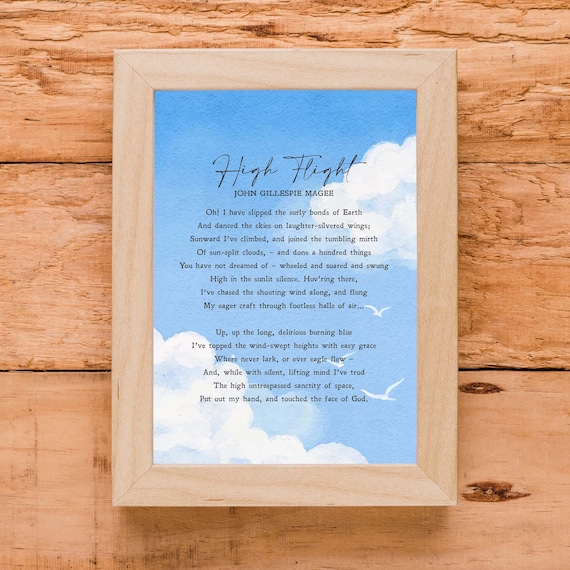 High Flight
JOHN GILLESPIE MAGEE
Oh! I have slipped the surly bonds of Earth
And danced the skies on laughter-silvered wings;
Sunward I've climbed, and joined the tumbling mirth
Of sun-split clouds, – and done a hundred things
You have not dreamed of – wheeled and soared and swung
High in the sunlit silence. Hov'ring there,
I've chased the shouting wind along, and flung
My eager craft through footless halls of air...
Up, up the long, delirious burning blue
I've topped the wind-swept heights with easy grace
Where never lark, or ever eagle flew –
And, while with silent, lifting mind I've trod
The high untrespassed sanctity of space,
Put out my hand, and touched the face of God.